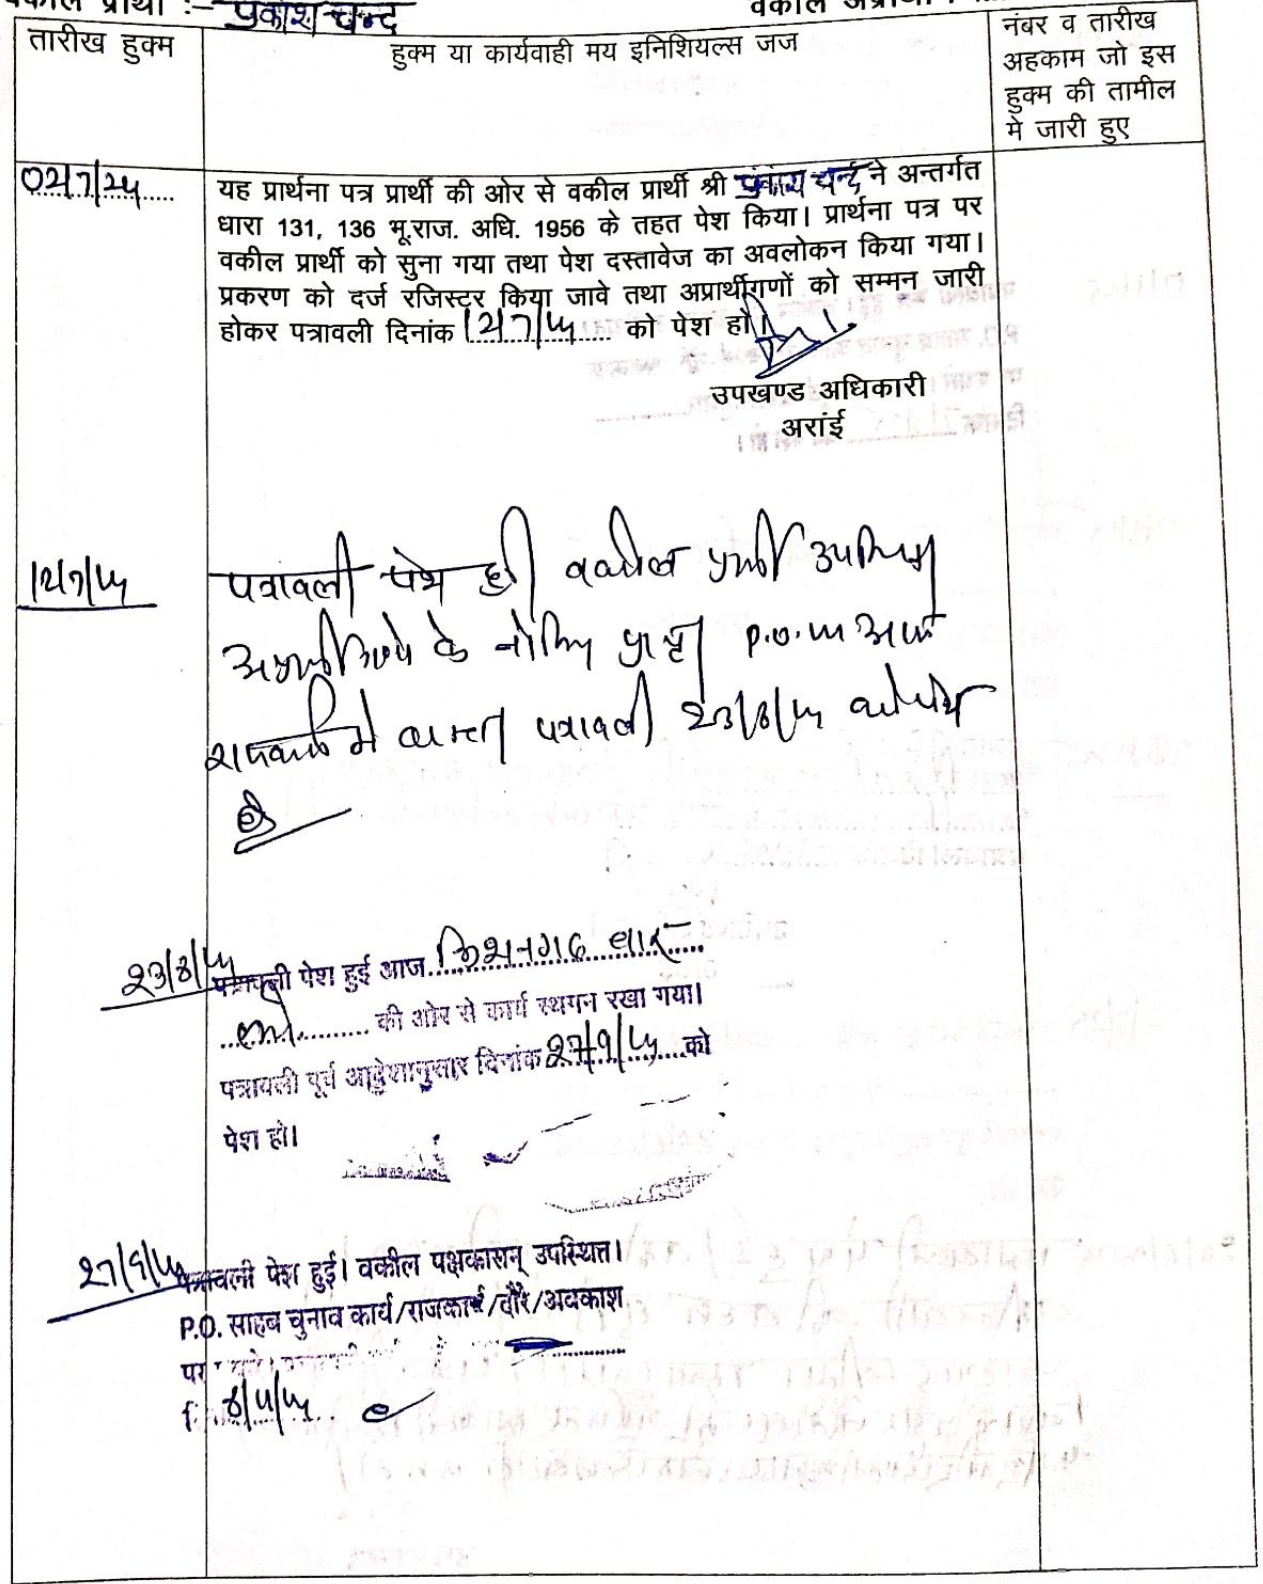 वकील प्रार्थी :- प्रकाश चन्द
वकील अप्रार्थी
तारीख हुक्म
हुक्म या कार्यवाही मय इनिशियल्स जज
नंबर व तारीख
अहकाम जो इस
हुक्म की तामील
मे जारी हुए
02/7/24
यह प्रार्थना पत्र प्रार्थी की ओर से वकील प्रार्थी श्री प्रकाश चन्द ने अन्तर्गत
धारा 131, 136 भू.राज. अधि. 1956 के तहत पेश किया। प्रार्थना पत्र पर
वकील प्रार्थी को सुना गया तथा पेश दस्तावेज का अवलोकन किया गया।
प्रकरण को दर्ज रजिस्टर किया जावे तथा अप्रार्थीगणों को सम्मन जारी
होकर पत्रावली दिनांक 12/7/24 को पेश हो।
उपखण्ड अधिकारी
अरांई
12/7/24
पत्रावली पेश हुई वकील प्रार्थी उपस्थित
के नोटिस P.O. सा
राजकार्य मे व्यस्त पत्रावली 23/8/24 को पेश
हो
23/8/24
पत्रावली पेश हुई आज किशनगढ बार
की ओर से कार्य स्थगन रखा गया।
पत्रावली पूर्व आदेशानुसार दिनांक 27/9/24 को
पेश हो।
27/9/24
पत्रावली पेश हुई। वकील पक्षकासन् उपस्थित।
P.O. साहब चुनाव कार्य/राजकार्य/दौरे/अवकाश
पर